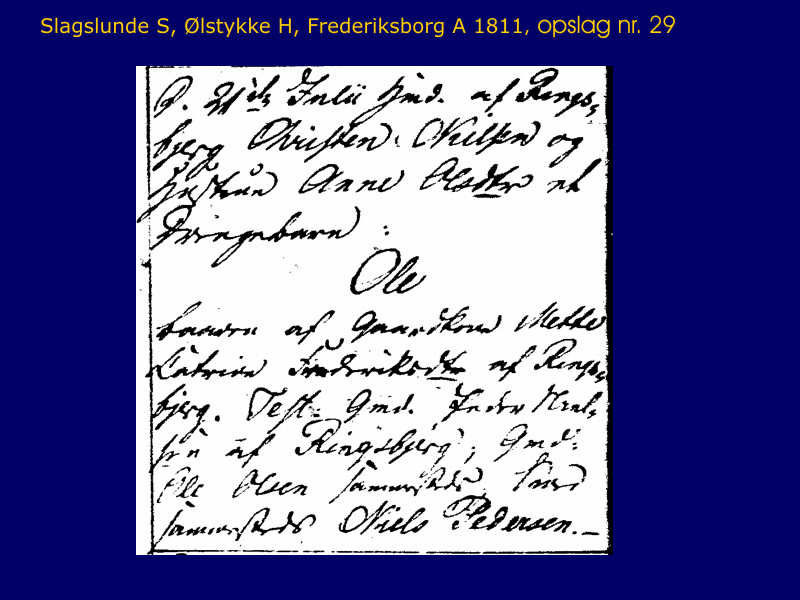 Slagslunde S, Ølstykke H, Frederiksborg A 1811, opslag nr. 29
D. 21de Julii Gmd. af Rings-
bjerg Christen Nielsen og
Hustrue Anne Olsdtr et
Drengebarn :
Ole
baaren af Gaardkone Mette
Catrine Frederiksdtr af Rings-
bjerg. Test: Gmd. Peder Niel-
sen af Ringsbjerg, Gmd:
Ole Olsen sammesteds,
sammesteds Niels Pedersen.